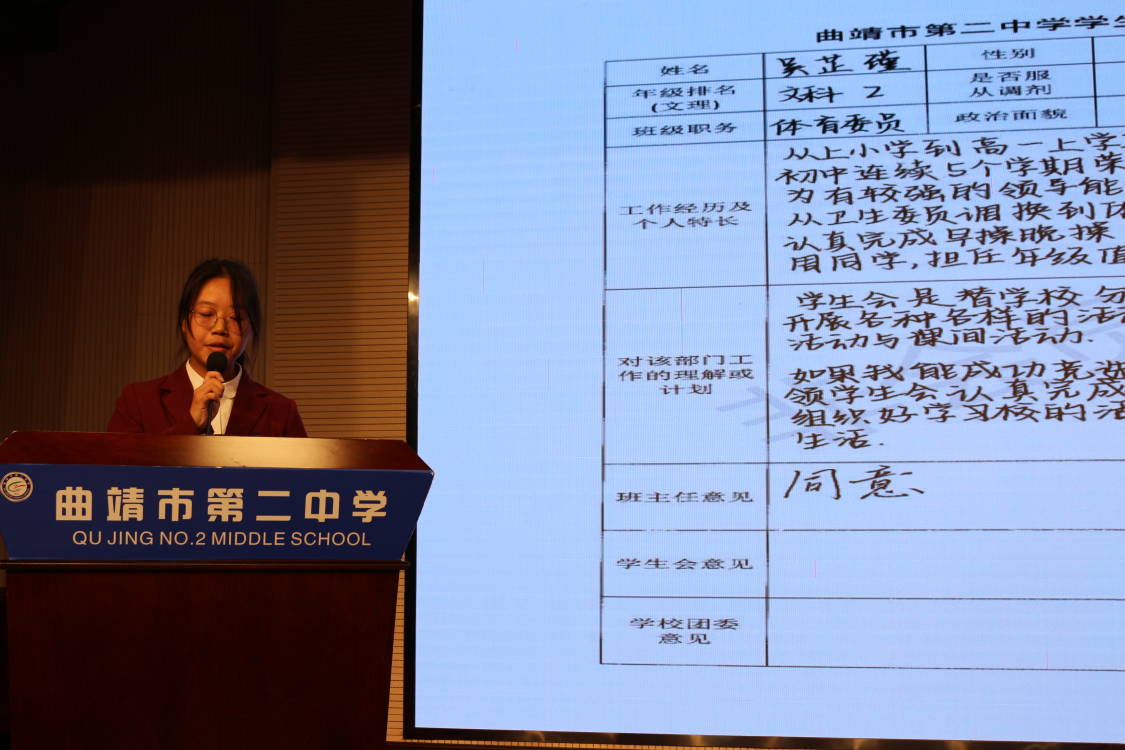 曲靖市第二中学学生
姓名 吴芷瑾 性别
年级排名 文科 2 是否服
(文理) 从调剂
班级职务 体育委员 政治面貌
工作经历及
个人特长
从上小学到高一上学
初中连续5个学期荣
为有较强的领导能
从卫生委员调换到体
认真完成早操晚操
用同学,担任年级值
对该部门工
作的理解或
计划
学生会是替学校分
开展各种各样的活动
活动与课间活动.
如果我能成功竞选
领学生会认真完成
组织好学习校的活
生活.
班主任意见 同意
学生会意见
学校团委
意见
曲靖市第二中学
QU JING NO.2 MIDDLE SCHOOL